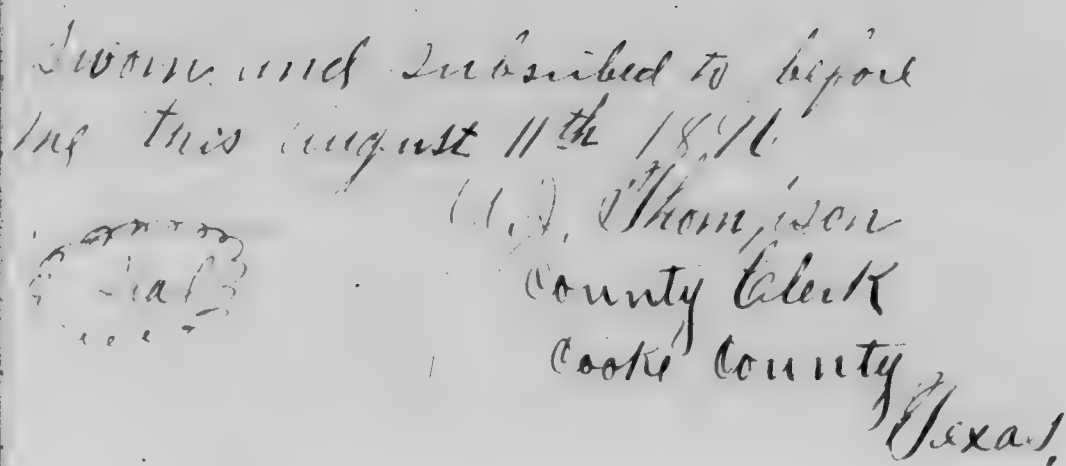 Sworn and Subsribed to before
me this august 11th
Thompson
County Clerk
Cooke County
Texas,
Seal